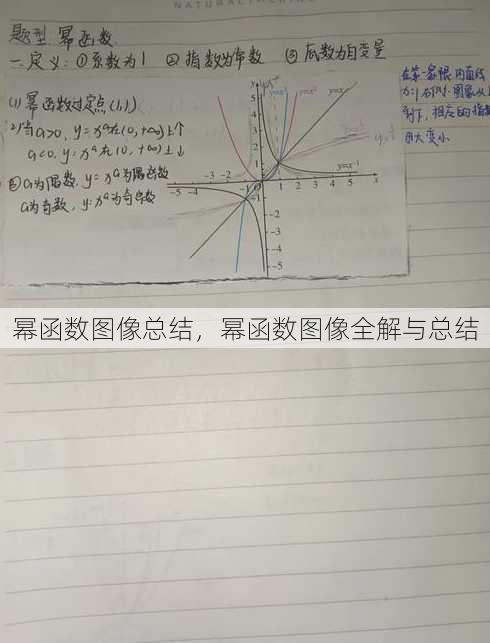 NATURAL
题型 幂函数
一.定义:①系数为1 ②指数为常数 ③底数为自变量
(1)幂函数过定点(1,1)
2)当a>0, y=xᵃ在(0,+∞)上↑
a<0, y=xᵃ在(0,+∞)上↓
③a为偶数, y=xᵃ为偶函数
a为奇数, y=xᵃ为奇函数
在第一象限内直线
x=1右侧,图象从上
到下,相应的指数
由大变小
y=x³
y=x²
y=x
y=x⁻¹
5
4
3
2
1
-5 -4 -3 -2 -1 O 1 2 3 4 5 x
-1
-2
-3
-4
-5
幂函数图像总结，幂函数图像全解与总结